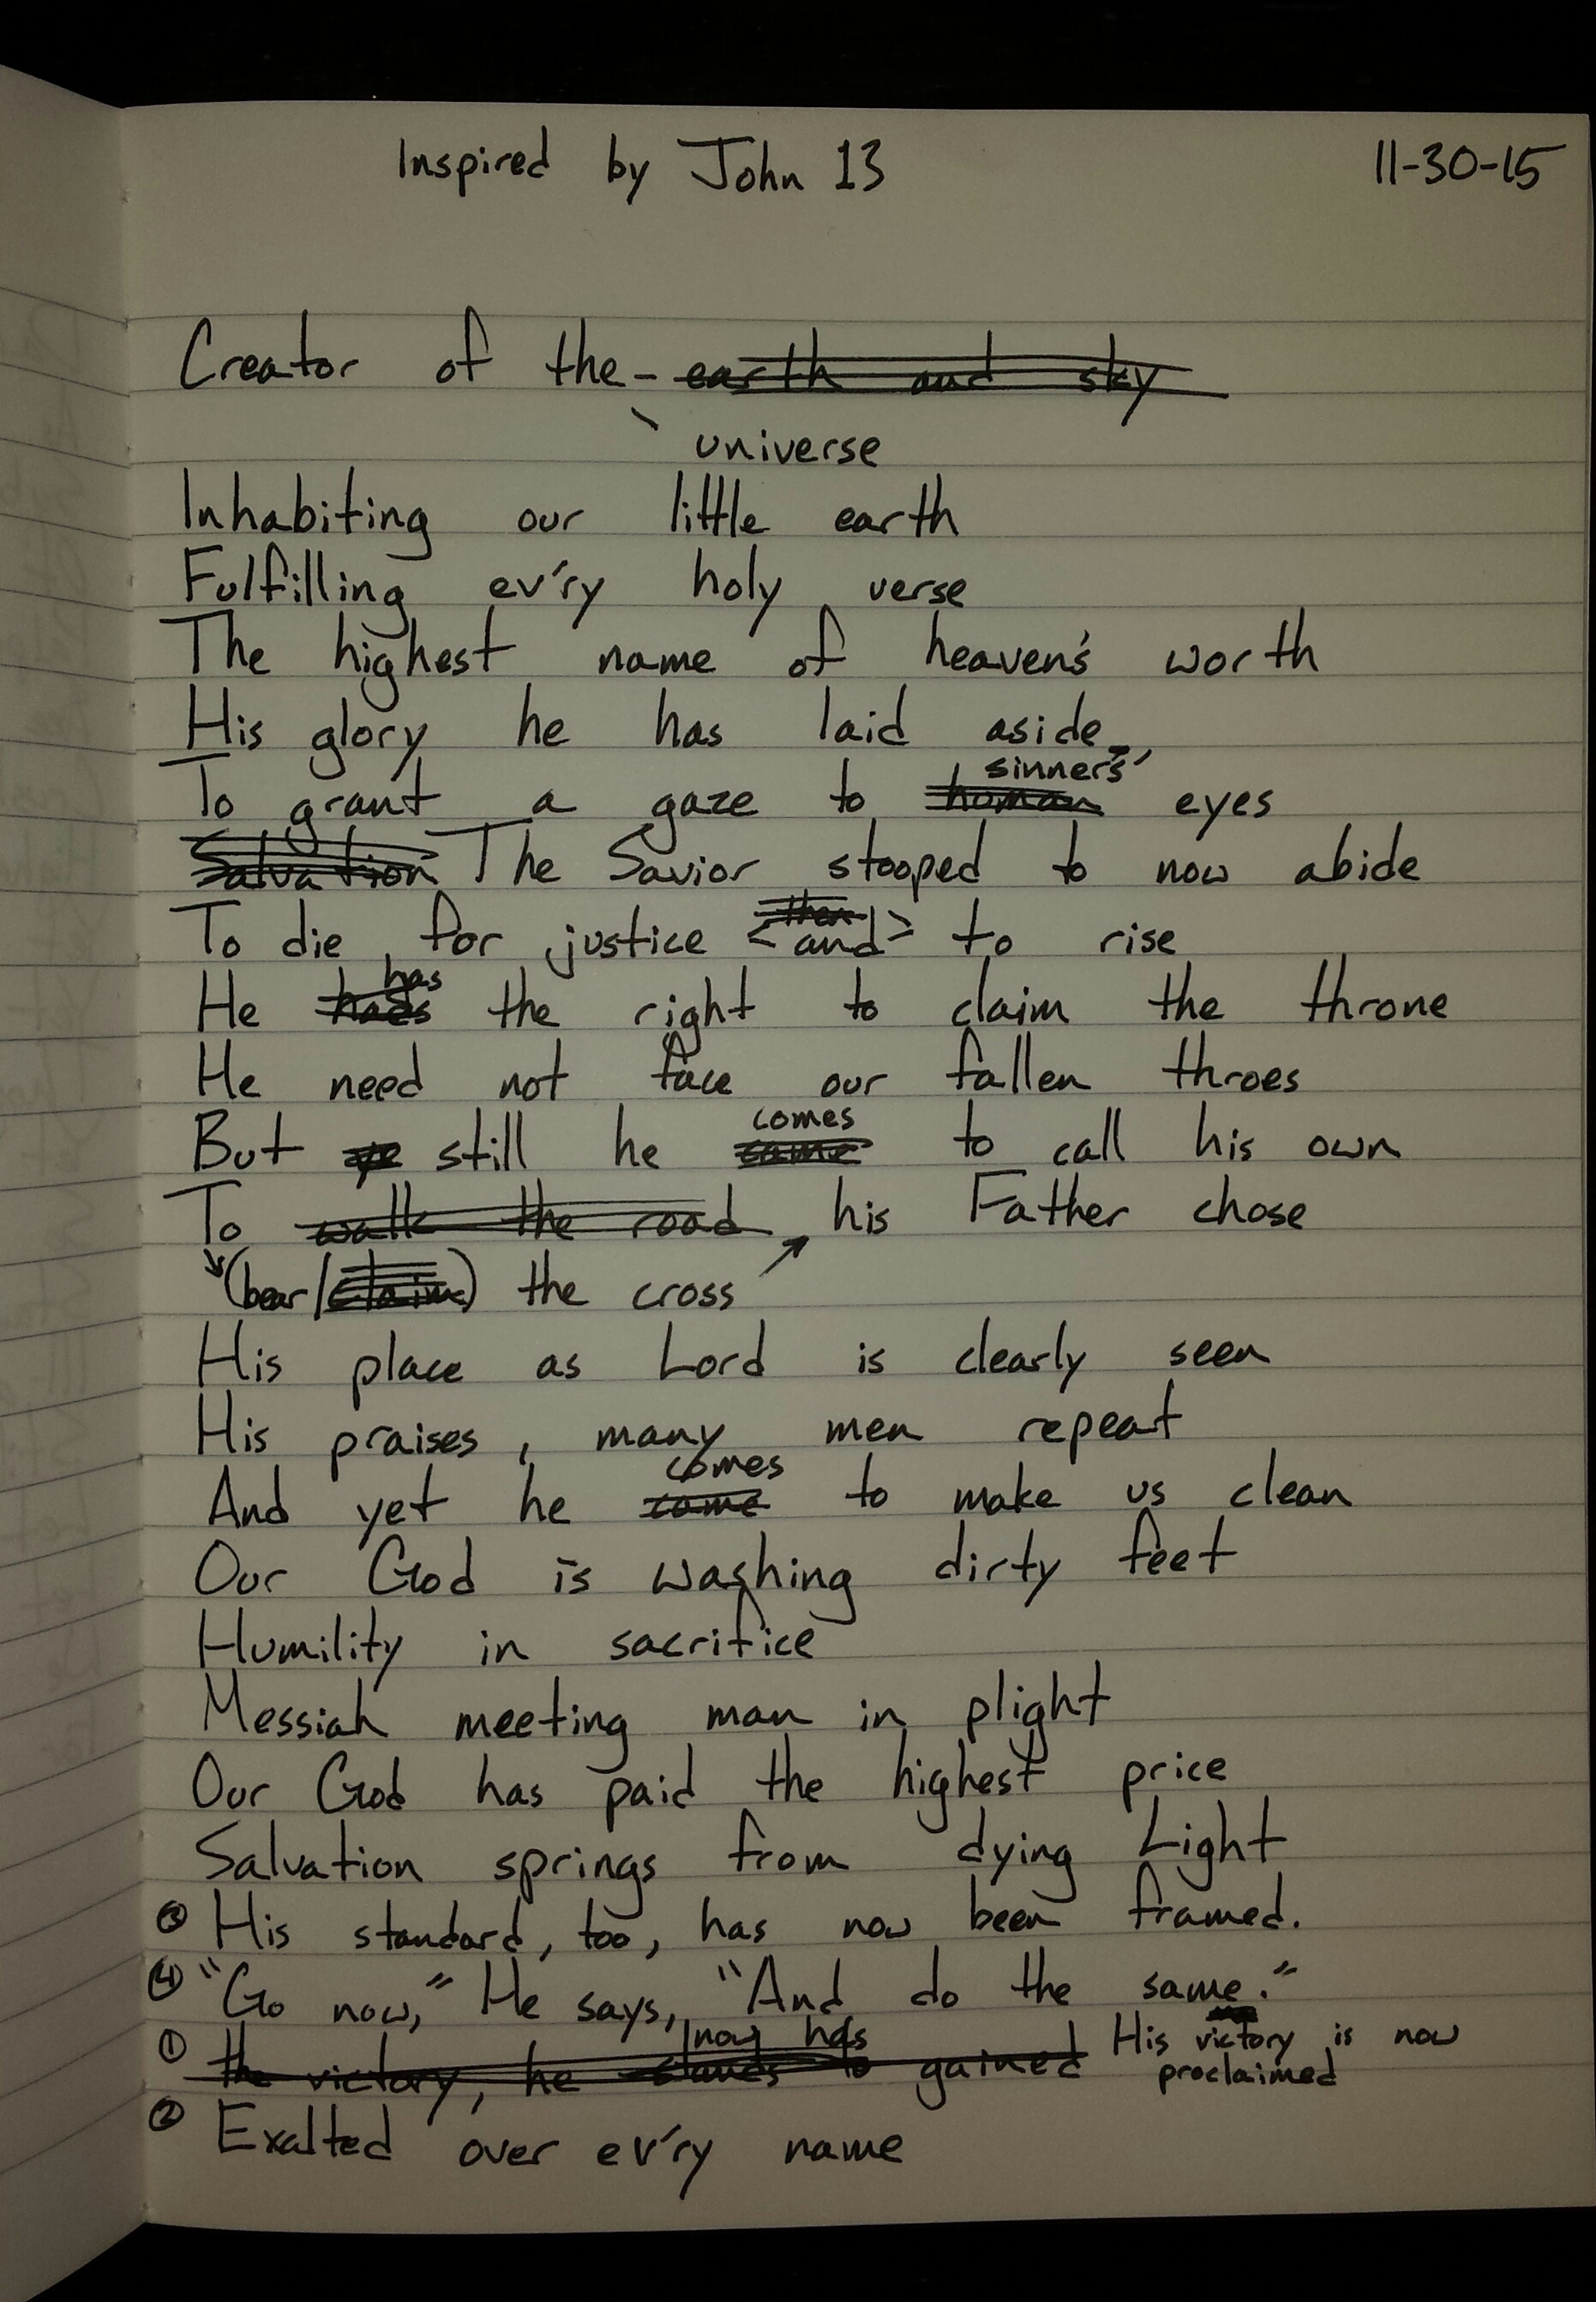 Inspired by John 13 11-30-15
Creator of the - earth and sky
universe
Inhabiting our little earth
Fulfilling ev'ry holy verse
The highest name of heaven's worth
His glory he has laid aside
sinners'
To grant a gaze to human eyes
Salvation The Savior stooped to now abide
then
To die for justice <and> to rise
has
He the right to claim the throne
He need not face our fallen throes
comes
But ye still he came to call his own
To walk the road his Father chose
(bear/claim) the cross
His place as Lord is clearly seen
His praises, many men repeat
comes
And yet he came to make us clean
Our God is washing dirty feet
Humility in sacrifice
Messiah meeting man in plight
Our God has paid the highest price
Salvation springs from dying Light
③ His standard, too, has now been framed.
④ "Go now," He says, "And do the same."
now has
① the victory, he stands to gained His victory is now
proclaimed
② Exalted over ev'ry name